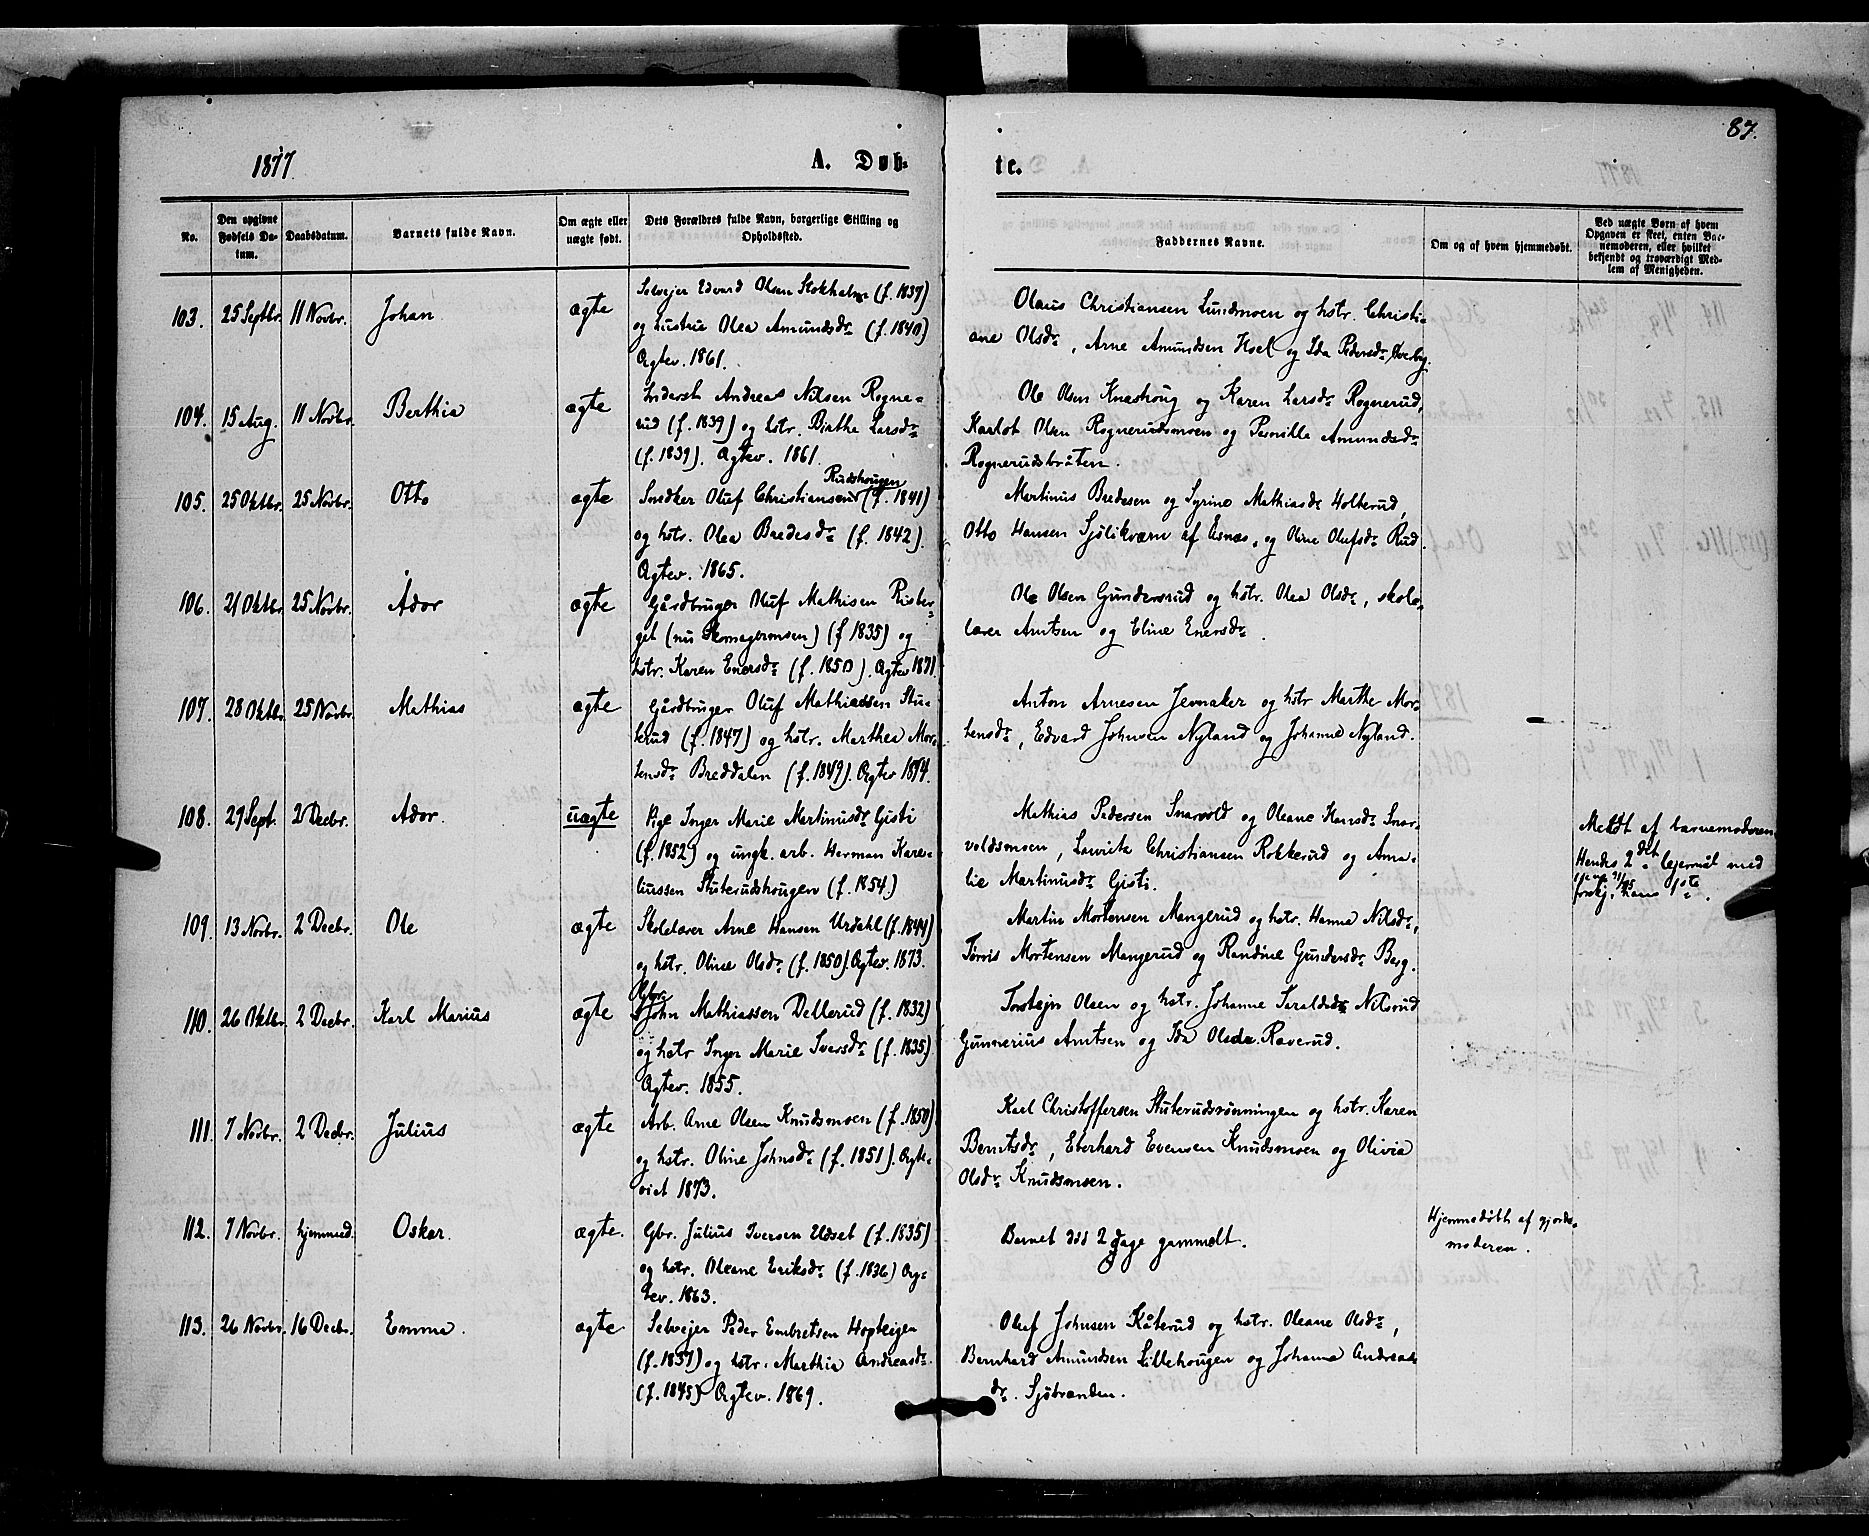 87.
1877.
A. Døb-
te.
No.
Den opgivne Fødsels Da-
tum.
Daabsdatum.
Barnets fulde Navn.
Om ægte eller
uægte født.
Dets Forældres fulde Navn, borgerlige Stilling og
Opholdssted.
Faddernes Navne.
Om og af hvem hjemmedøbt.
Ved uægte Børn af hvem
Opgaven er skeet, enten Bar-
nemoderen, eller hvilket
bekjendt og troværdigt Med-
lem af Menigheden.
103. 25 Septbr. 11 Novbr. Johan ægte
Selvejer Edvard Olsen Stokholm (f. 1837)
og hustru Olea Amundsdr (f. 1840)
Ægtev. 1861.
Olaus Christiansen Lundsmoen og hstr. Christi-
ane Olsdr, Arne Amundsen Hoel og Ida Pedersdr Øverby.
104. 15 Aug. 11 Novbr. Berthia ægte
Inderst Andreas Nilsen Rogne-
rud (f. 1839) og hstr. Birthe Larsdr
(f. 1839). Ægtev. 1861.
Ole Olsen Knashoug og Karen Larsdr Rognerud,
Karlot Olsen Rognerudsmoen og Pernille Amundsdr
Rognerudsbråten.
105. 25 Oktbr. 25 Novbr. Otto ægte
Rudshougen
Snedker Oluf Christiansen (f. 1841)
og hstr. Olea Bredesdr (f. 1842).
Ægtev. 1865.
Martinus Bredesen og Syrine Mathiasdr Holterud,
Otto Hansen Sjølikværn af Åsnæs, og Oline Olufsdr Rud.
106. 21 Oktbr 25 Novbr. Ådor ægte
Gårdbruger Oluf Mathisen Risber-
get (nu Skomagermoen) (f 1835) og
hstr. Karen Enersdr (f. 1850). Ægtev 1871.
Ole Olsen Gundersrud og hstr. Olea Olsdr, skole-
lærer Arntsen og Eline Enersdr.
107. 28 Oktbr. 25 Novbr. Mathias ægte
Gårdbruger Oluf Mathiassen Stu-
terud (f. 1847) og hstr. Marthea Mor-
tensdr Breddalen (f. 1849). Ægtev 1874.
Anton Arnesen Jevnaker og hstr Marthe Mor-
tensdr, Edvard Johnsen Nyland og Johanne Nyland.
108. 29 Sept. 2 Decbr. Ador. uægte
Pige Inger Marie Martinusdr Gisti
(f. 1852) og ungk. arb. Herman Kare-
liussen Stuterudshougen (f. 1854.)
Mathias Pedersen Snarvold og Oleane Hansdr Snar-
voldsmoen, Lauritz Christiansen Rokkerud og Ama-
lie Martinusdr Gisti.
Meldt af barnemoderen.
Hendes 2det lejermål med
forskj. hans 1ste.
109. 13 Novbr. 2 Decbr. Ole ægte
Skolelærer Arne Hansen Urdahl (f. 1844)
og hstr. Oline Olsdr (f. 1850). Ægtev. 1873.
Martin Mortensen Mangerud og hstr. Hanna Nilsdr,
Tørris Mortensen Mangerud og Randine Gundersdr Berg.
110. 26 Oktbr. 2 Decbr. Karl Marius ægte
Gbr.
John Mathiassen Dellerud (f. 1832)
og hstr Inger Marie Iversdr (f. 1835)
Ægtev. 1855.
Torstejn Olsen og hstr. Johanne Taraldsdr Nilsrud
Gunnerius Arntsen og Ida Olsdr. Raverud.
111. 7 Novbr. 2 Decbr. Julius ægte
Arb. Arne Olsen Knudsmoen (f. 1850)
og hstr. Oline Johnsdr (f. 1851). Ægte-
viet 1873.
Karl Christoffersen Stuterudsrønningen og hstr. Karen
Berntsdr, Eberhard Evensen Knudsmoen og Olivia
Olsdr Knudsmoen.
112. 7 Novbr. hjemmed. Oskar. ægte.
Gbr. Julius Iversen Udset (f. 1835)
og hstr. Oleane Eriksdr (f. 1836) Æg-
tev. 1863.
Barnet død 2 dage gammelt.
Hjemmedøbt af gjorde-
moderen.
113. 26 Novbr. 16 Decbr. Emma. ægte
Selvejer Peder Embretsen Hopteigen
(f. 1837) og hstr. Marthia Andreasdr.
(f. 1845) Ægtev. 1869.
Oluf Johnsen Kåterud og hstr. Oleane Olsdr,
Bernhard Amundsen Lillehougen og Johanna Andreas-
dr. Sjøtranden.